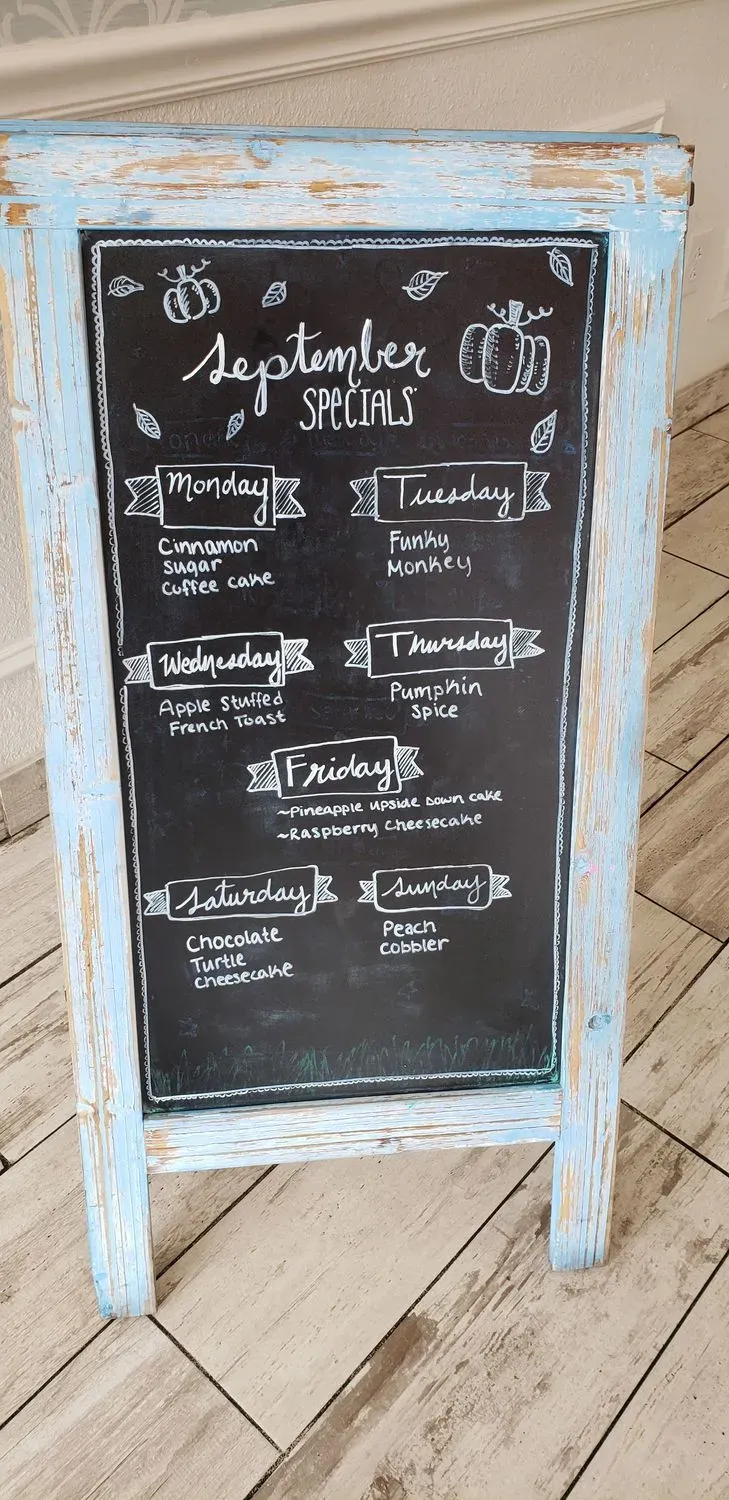 September
SPECIALS
Monday
Cinnamon
Sugar
Coffee cake
Tuesday
Funky
Monkey
Wednesday
Apple Stuffed
French Toast
Thursday
Pumpkin
Spice
Friday
~Pineapple upside Down cake
~Raspberry Cheesecake
Saturday
Chocolate
Turtle
Cheesecake
Sunday
Peach
Cobbler